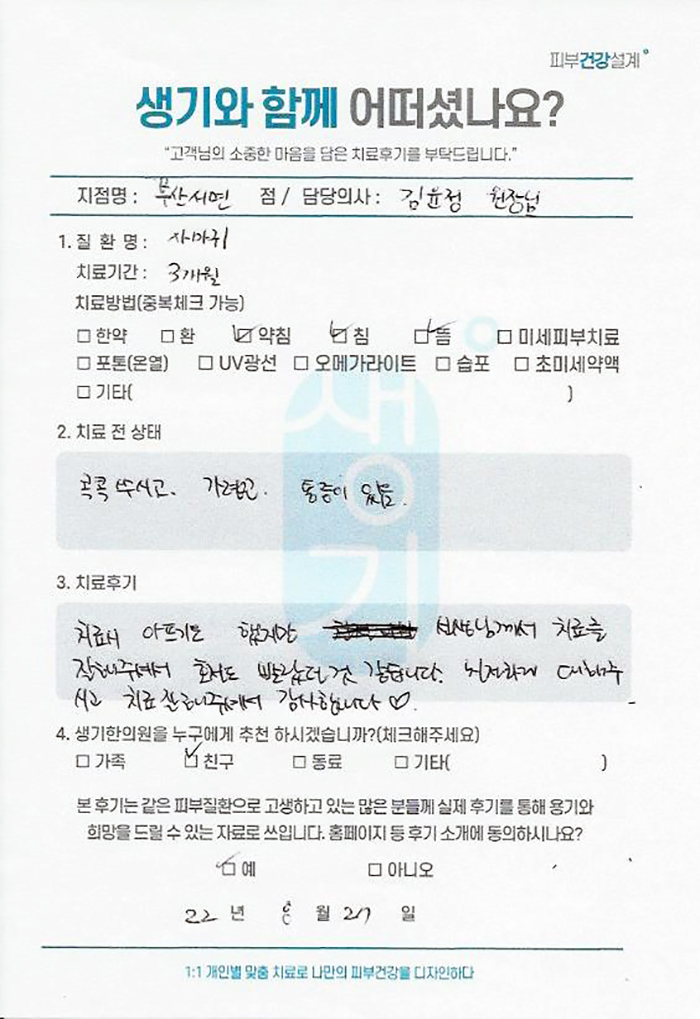 피부건강설계
생기와 함께 어떠셨나요?
"고객님의 소중한 마음을 담은 치료후기를 부탁드립니다."
지점명 : 부산서면 점 / 담당의사 : 김윤정 원장님
1. 질 환 명 : 사마귀
치료기간 : 3개월
치료방법(중복체크 가능)
□ 한약 □ 환 ☑ 약침 ☑ 침 ☑ 뜸 □ 미세피부치료
□ 포톤(온열) □ UV광선 □ 오메가라이트 □ 습포 □ 초미세약액
□ 기타( )
2. 치료 전 상태
콕콕 쑤시고. 가렵고. 통증이 있음.
3. 치료후기
치료시 아프기는 했지만 선생님께서 치료를
잘해주셔서 효과도 빨랐던것 같습니다. 친절하게 대해주
시고 치료 잘해주셔서 감사합니다 ♡.
4. 생기한의원을 누구에게 추천 하시겠습니까?(체크해주세요)
□ 가족 ☑ 친구 □ 동료 □ 기타( )
본 후기는 같은 피부질환으로 고생하고 있는 많은 분들께 실제 후기를 통해 용기와
희망을 드릴 수 있는 자료로 쓰입니다. 홈페이지 등 후기 소개에 동의하시나요?
☑ 예 □ 아니오
22 년 8 월 27 일
1:1 개인별 맞춤 치료로 나만의 피부건강을 디자인하다
생기